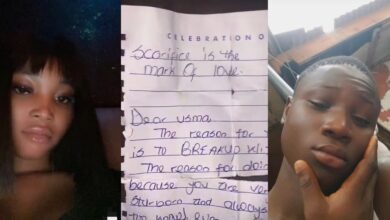 CELEBRATION O
Sacrifice is the
mark Of love.
Dear usma
The reason for
is to BREAKUP Wit
The reason for doin
because you are ver
Stubborn and always
the